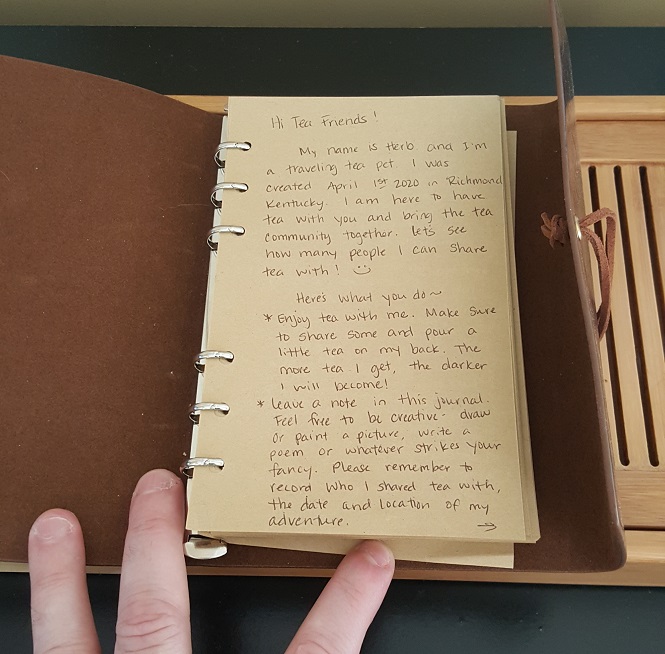 Hi Tea Friends!
My name is Herb and I'm
a traveling tea pet. I was
created April 1st 2020 in Richmond
Kentucky. I am here to have
tea with you and bring the tea
community together. Let's see
how many people I can share
tea with! ☺
Here's what you do~
* Enjoy tea with me. Make sure
to share some and pour a
little tea on my back. The
more tea I get, the darker
I will become!
* Leave a note in this journal.
Feel free to be creative - draw
or paint a picture, write a
poem or whatever strikes your
fancy. Please remember to
record who I shared tea with,
the date and location of my
adventure. →